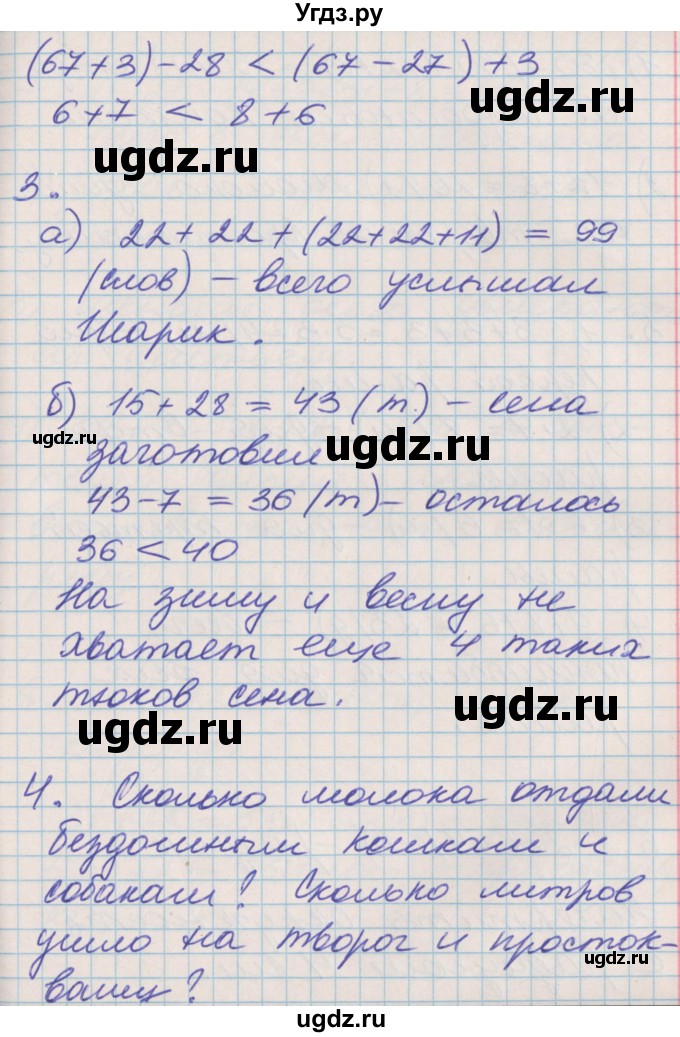 Угдз.ру
(67+3)-28 < (67-27)+3
6+7 < 8+6
ugdz.ru
ugdz.ru
3.
а) 22+22+(22+22+11) = 99
ugdz.ru
(слов) - всего услышал
Шарик.
ugdz.ru
б) 15+28 = 43 (т.) - сена
ugdz.ru
ugdz.ru
заготовил
43-7 = 36 (т) - осталось
36 < 40
ugdz.ru
На зиму и весну не
хватает еще 4 таких
тюков сена.
ugdz.ru
ugdz.ru
4. Сколько молока отдали
бездомным кошкам и
собакам? Сколько литров
ушло на творог и просток-
ugdz.ru
вашу?
ugdz.ru